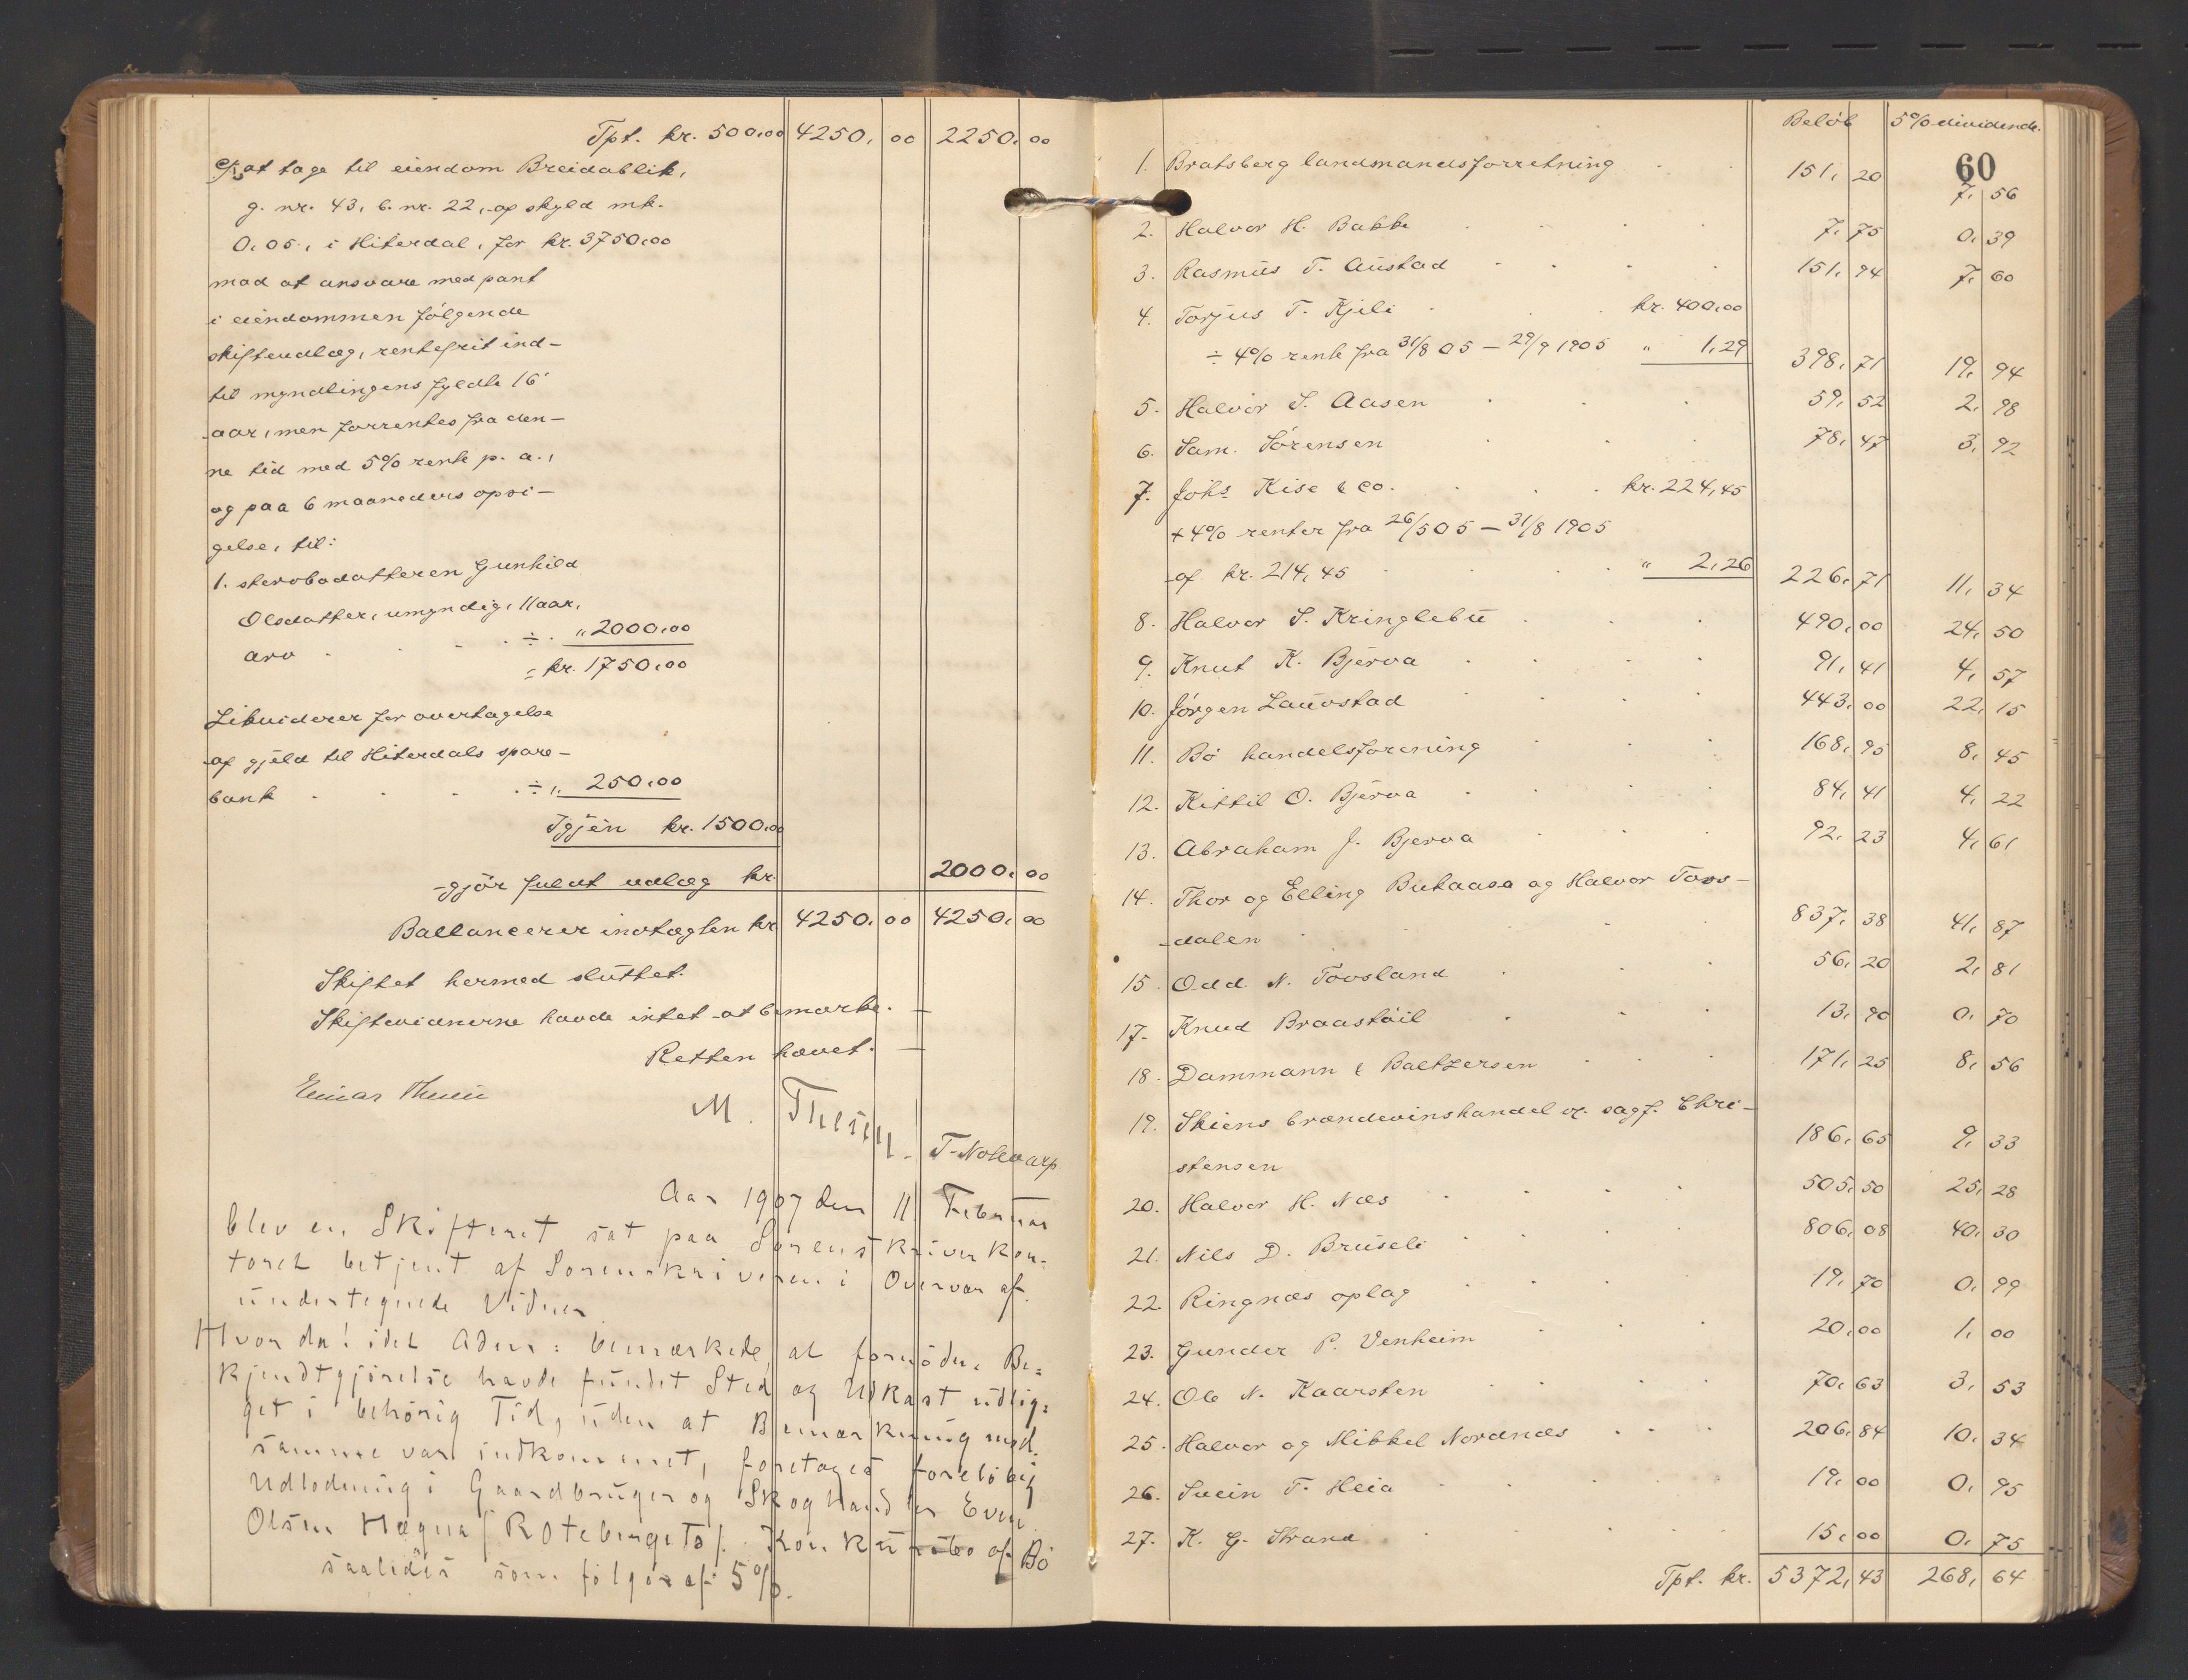 Tpt. kr. 500,00 4250,00 2250,00
at tage til eiendom Breidablik,
g. nr. 43, b. nr. 22, af skyld mk.
0,05, i Hiterdal, for kr. 3750,00
mod at ansvare med pant
i eiendommen følgende
skifteudlæg, rentefrit ind-
til myndlingens fyldte 16
aar, men forrentes fra den-
ne tid med 5% rente p. a.,
og paa 6 maaneders opsi-
gelse, til:
1. stervbodatteren Gunhild
Olsdatter, umyndig, 11 aar,
arv ÷ „ 2000,00
= kr. 1750,00
Likviderer for overtagelse
af gjæld til Hiterdals spare-
bank ÷ „ 250,00
Igjen kr. 1500,00
gjør fuldt udlæg kr. 2000,00
Ballancerer indtægten kr. 4250,00 4250,00
Skiftet hermed sluttet.
Skiftevidnerne havde intet at bemærke. —
Retten hævet. —
M. T. Notevarp
Aar 1907 den 11 Februar
blev en Skifteret sat paa Sorenskriverkon-
toret betjent af Sorenskriveren i Overvær af
undertegnede Vidner
Hvorda: idet Adm: bemærkede, at fornøden Be=
kjendtgjørelse havde fundet Sted og Udkast udlig=
get i behørig Tid, uden at Bemærkning mod
samme var indkommet, foretages foreløbig
Udlodning i Gaardbruger og Skoghandler Even
Olsen Hægna (Rotebergets) Konkursbo af Bø
saaledes som følger af 5%.
Beløb 5% dividende.
60
1. Bratsberg landmandsforretning 151,20 7,56
2. Halvor H. Bakke 7,75 0,39
3. Rasmus T. Austad 151,94 7,60
4. Torjus T. Kjili kr. 400,00
÷ 4% rente fra 31/8 05 — 29/9 1905 „ 1,29 398,71 19,94
5. Halvor S. Aasen 59,52 2,98
6. Sam. Sørensen 78,47 3,92
7. Johs. Kise & co. kr. 224,45
+ 4% renter fra 26/5 05 — 31/8 1905
af kr. 214,45 „ 2,26 226,71 11,34
8. Halvor S. Kringlebu 490,00 24,50
9. Knut K. Bjerva 91,41 4,57
10. Jørgen Lauvstad 443,00 22,15
11. Bø handelsforening 168,95 8,45
12. Kittil O. Bjerva 84,41 4,22
13. Abraham J. Bjerva 92,23 4,61
14. Thor og Elling Bukaasa og Halvor Tovs-
dalen 837,38 41,87
15. Odd N. Tovsland 56,20 2,81
17. Knud Braastøil 13,90 0,70
18. Dammann & Baltzersen 171,25 8,56
19. Skiens brændevinshandel v. sagf. Chri-
stensen 186,65 9,33
20. Halvor H. Næs 505,50 25,28
21. Nils D. Bruseli 806,08 40,30
22. Ringnæs oplag 19,70 0,99
23. Gunder P. Venheim 20,00 1,00
24. Ole N. Kaarsten 70,63 3,53
25. Halvor og Mikkel Nordnæs 206,84 10,34
26. Svein T. Heia 19,00 0,95
27. K. G. Strand 15,00 0,75
Tpt. kr. 5372,43 268,64